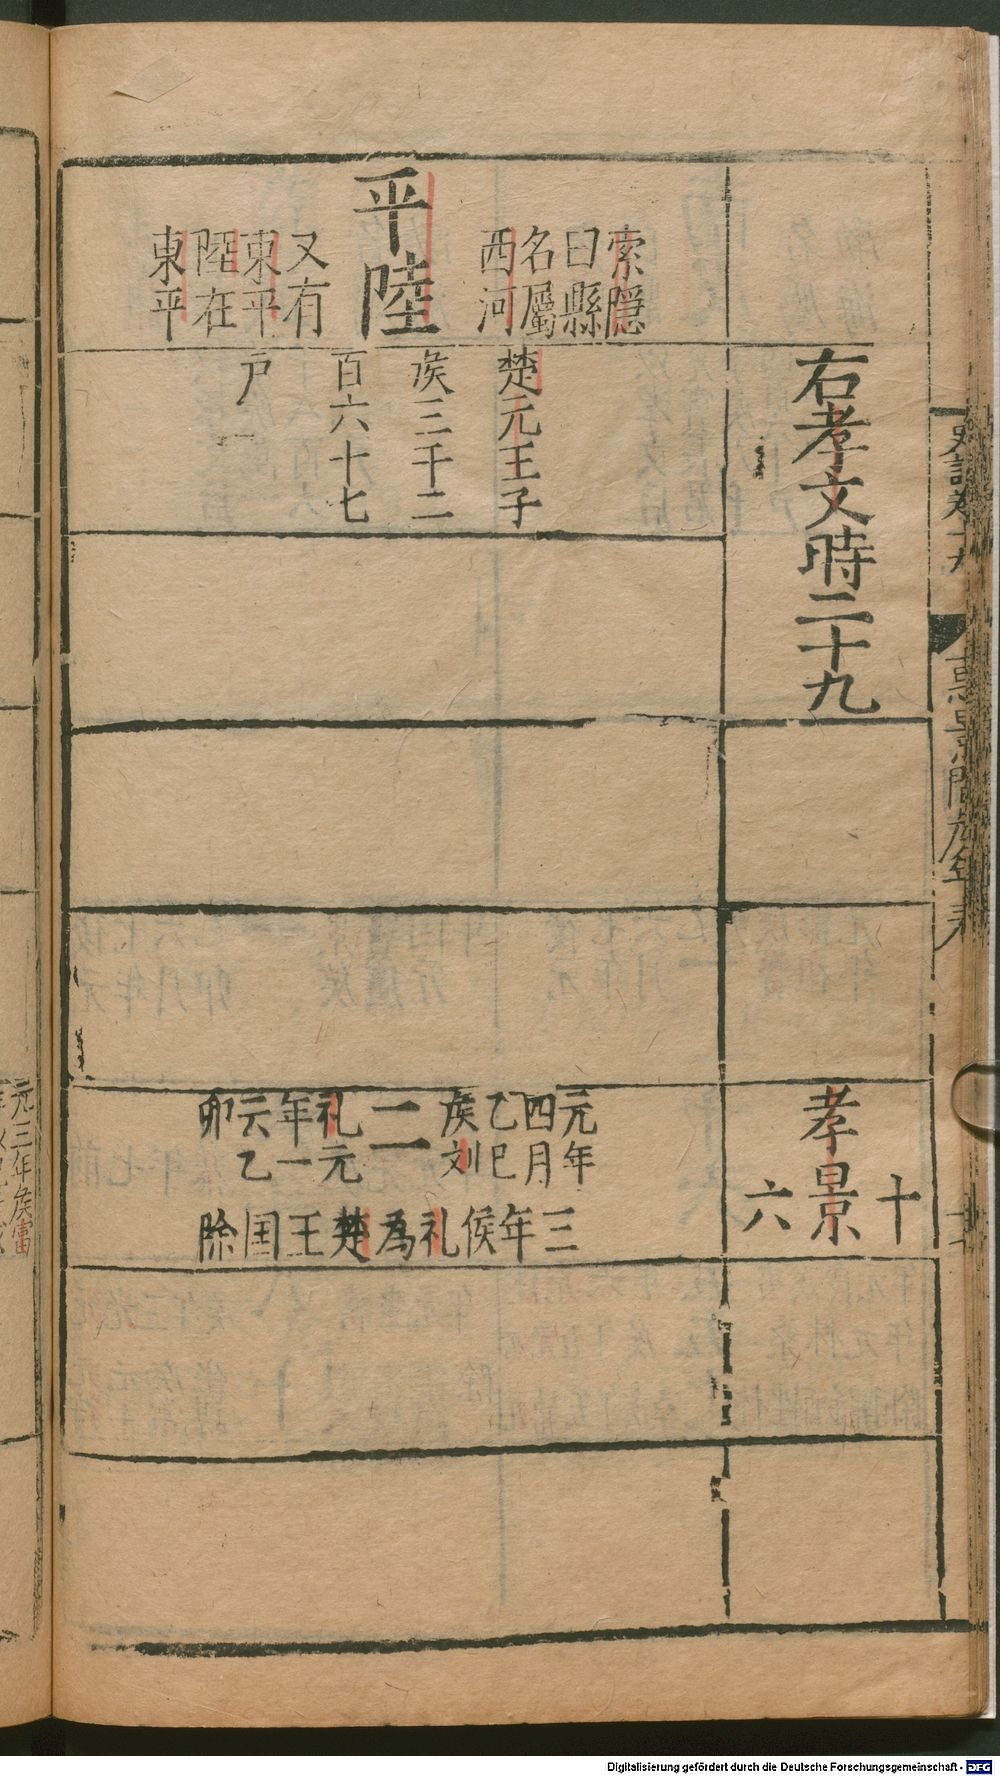 史記卷十九
惠景間矦年表
右孝文時二十九
孝景
十
六
索隱
曰縣
名屬
西河
平陸
又有
東平
陸在
東平
楚元王子
矦三千二
百六十七
户
元年
四月
乙巳
矦刘
礼元
年一
云乙
卯
二
三年侯礼為楚王国除
元三年矦富
Digitalisierung gefördert durch die Deutsche Forschungsgemeinschaft - DFG